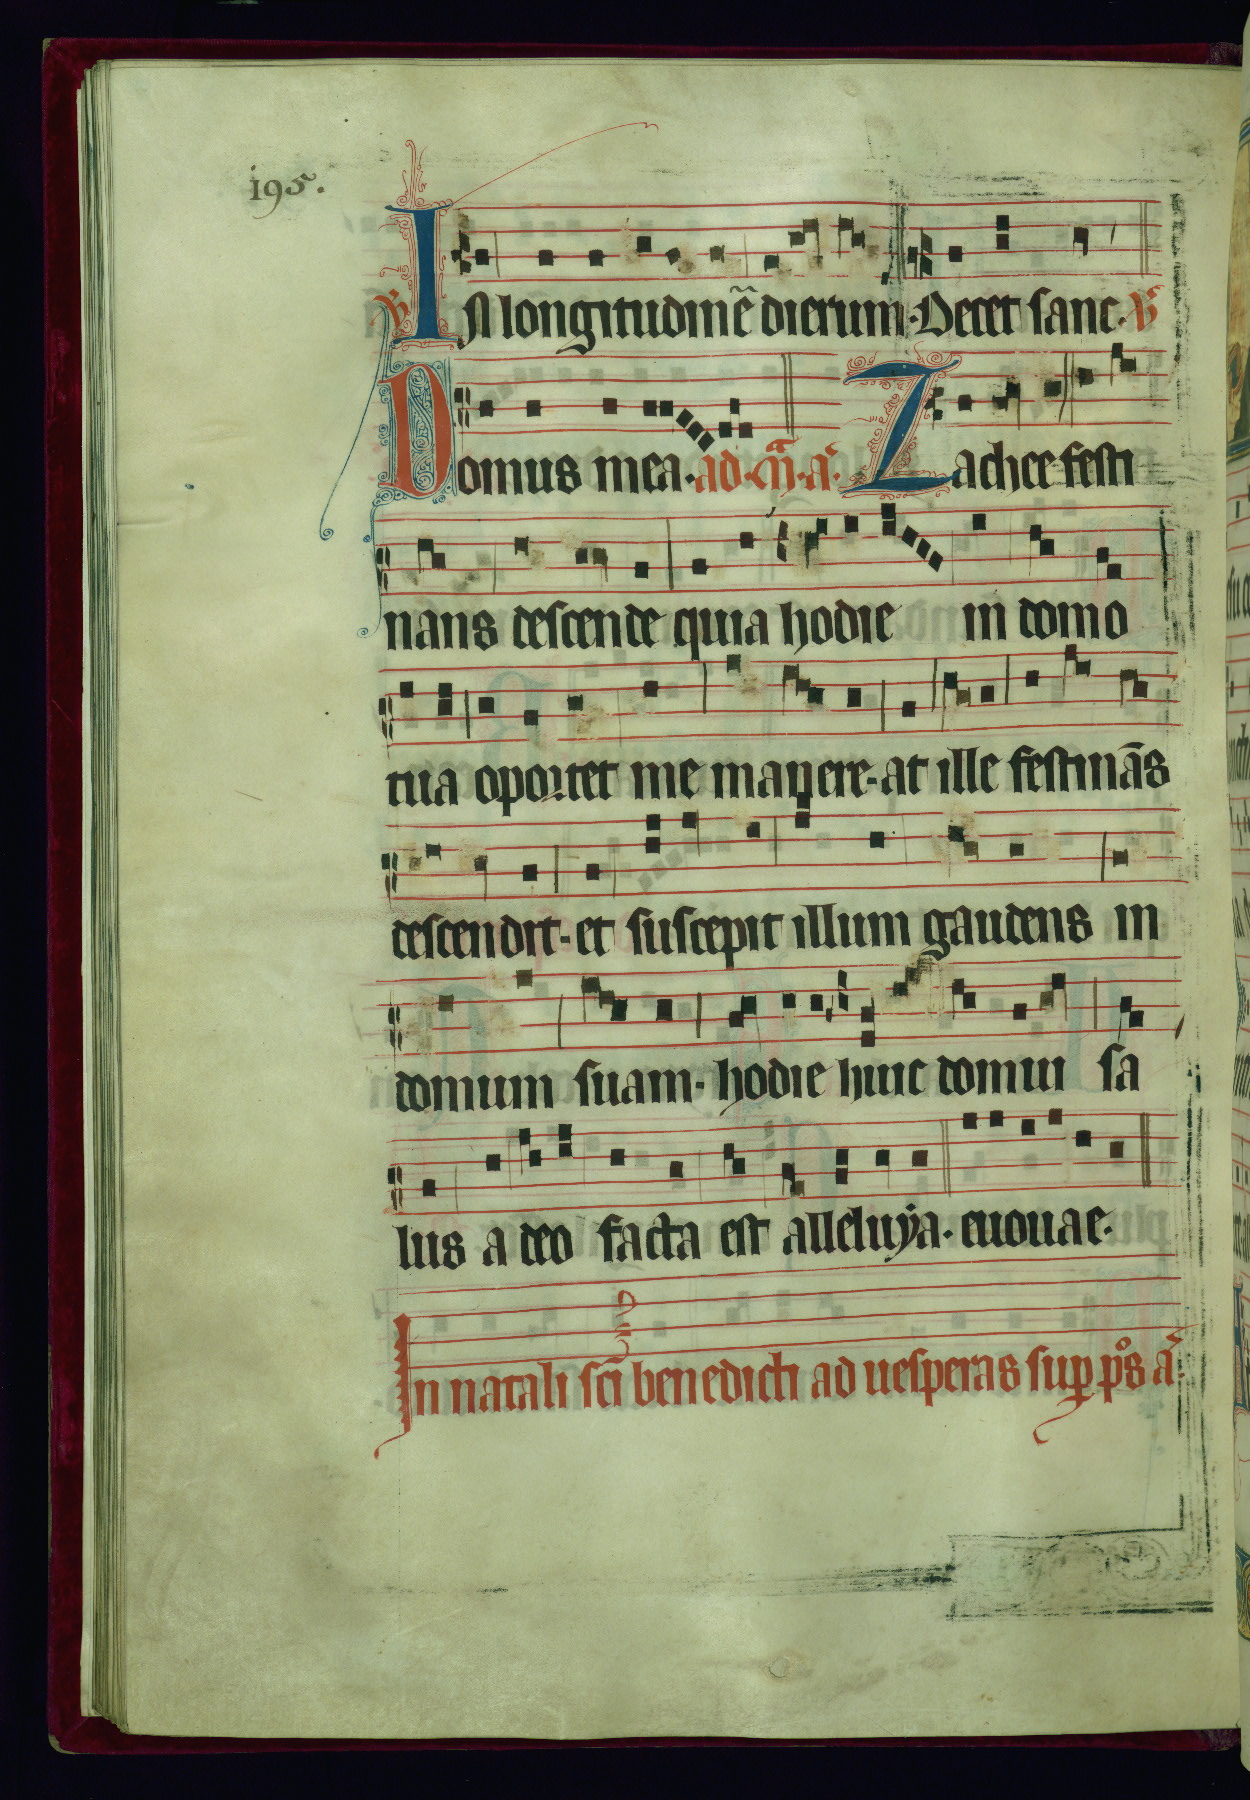 195.
℣ IN longitudinē dierum. Decet sanc. ℣
Domus mea. ad. m̄. a͛. Zachee festi
nans descende quia hodie in domo
tua oportet me manere. at ille festinās
descendit. et suscepit illum gaudens in
domum suam. hodie huic domui sa
lus a deo facta est alleluẏa. euouae.
In natali sc̄i benedicti ad uesperas sup̱ pͦs a͛.